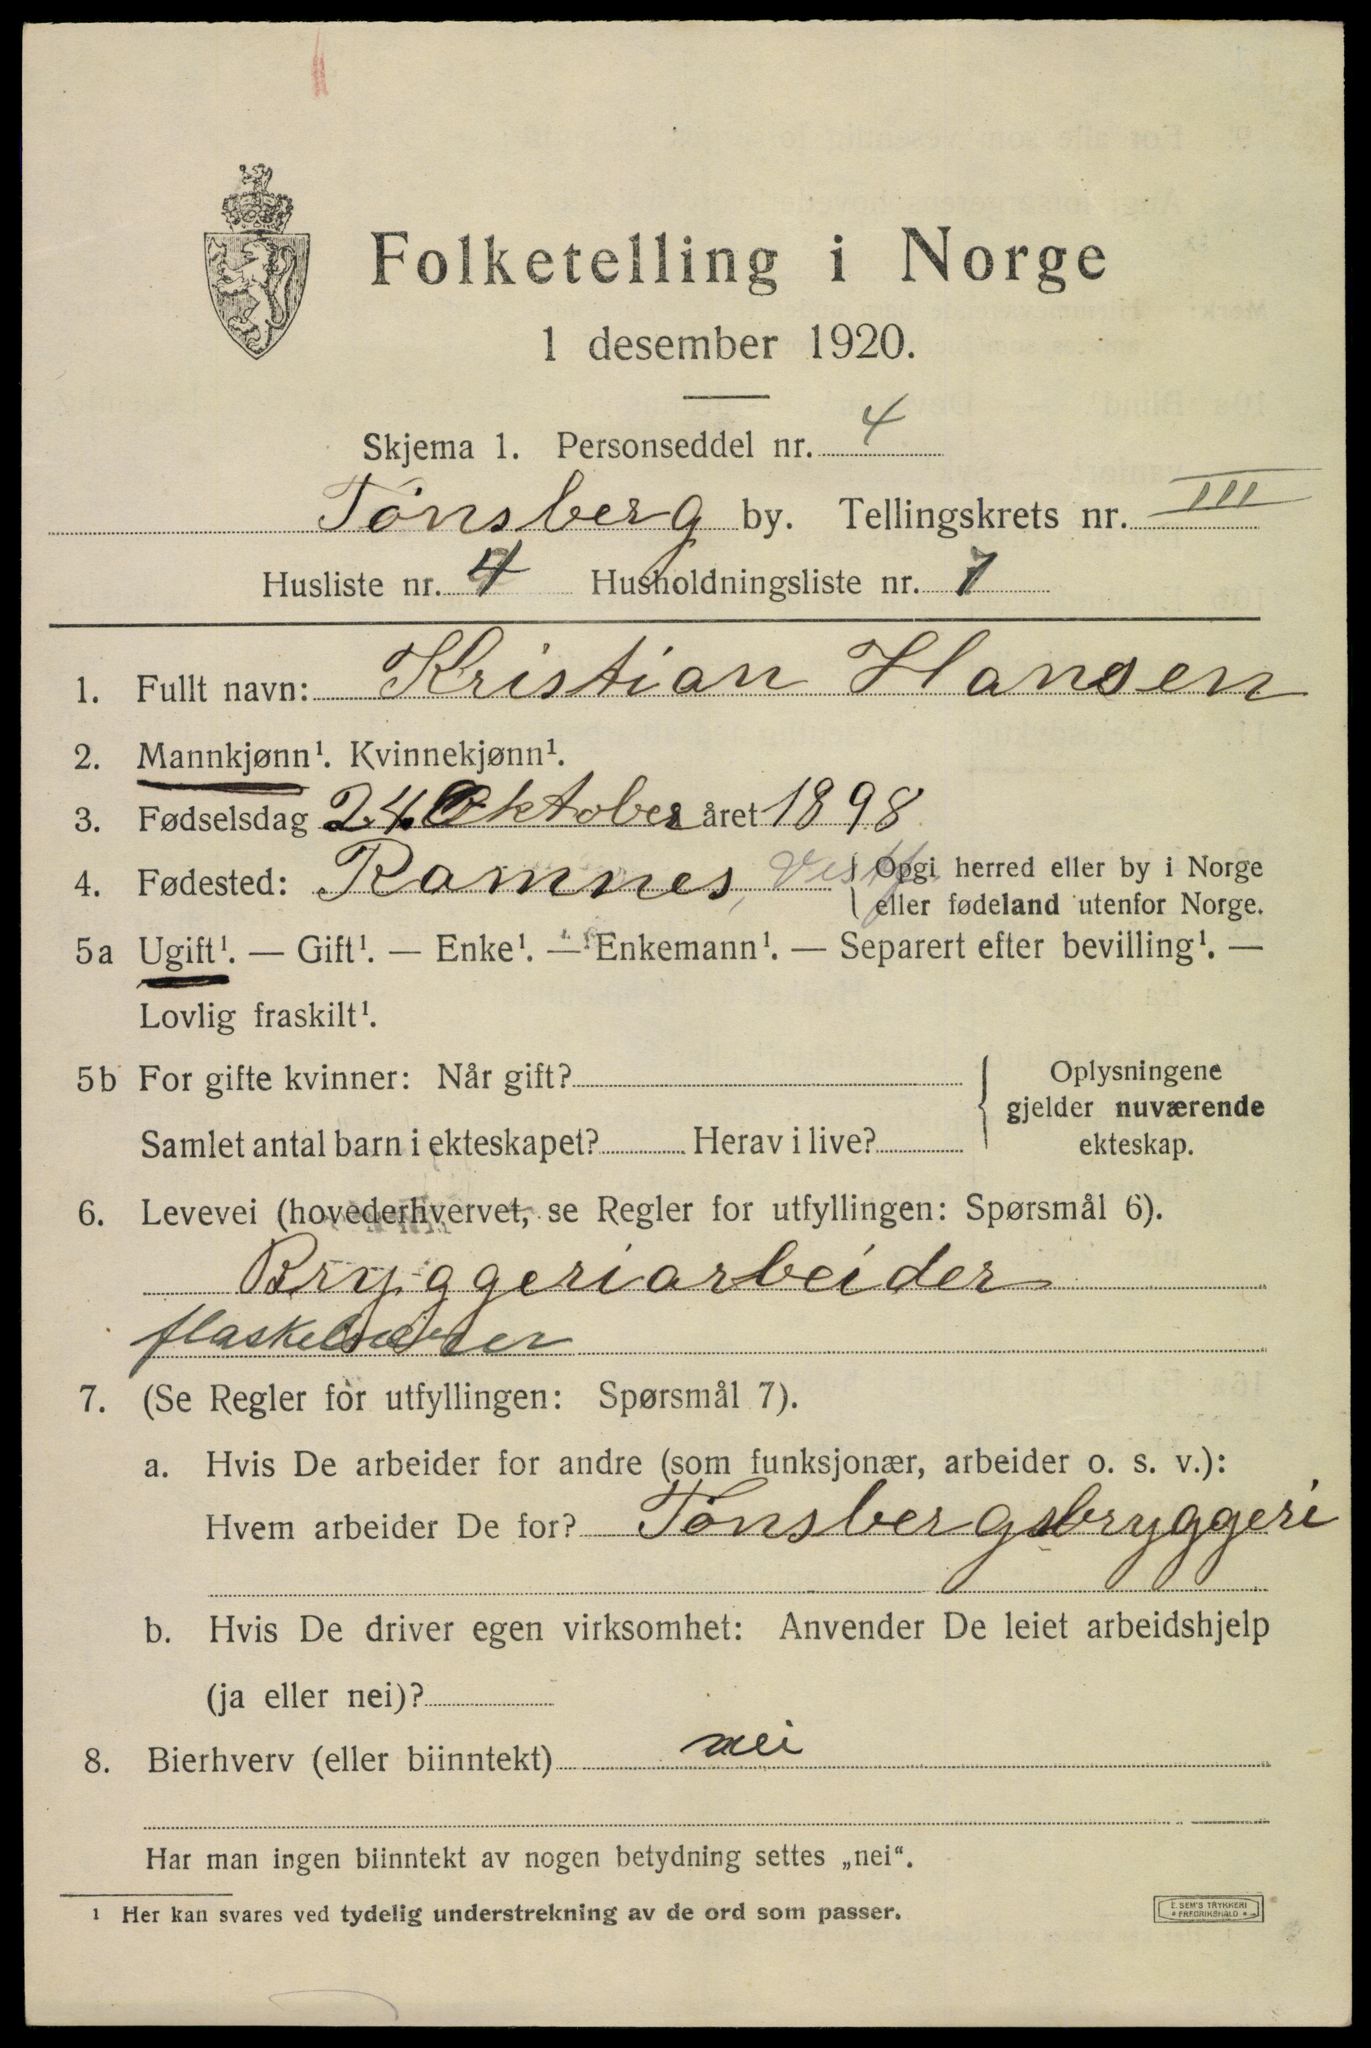 Folketelling i Norge
1 desember 1920.
Skjema 1. Personseddel nr. 4
Tønsberg by. Tellingskrets nr. III
Husliste nr. 4 Husholdningsliste nr. 1
1. Fullt navn: Kristian Hansen
2. Mannkjønn¹. Kvinnekjønn¹.
3. Fødselsdag 24. Oktober året 1898
4. Fødested: Ramnes, Vestf. { Opgi herred eller by i Norge
eller fødeland utenfor Norge.
5a Ugift¹. — Gift¹. — Enke¹. — Enkemann¹. — Separert efter bevilling¹. —
Lovlig fraskilt¹.
5b For gifte kvinner: Når gift?
Samlet antal barn i ekteskapet? Herav i live?
{ Oplysningene
gjelder nuværende
ekteskap.
6. Levevei (hovederhvervet, se Regler for utfyllingen: Spørsmål 6).
Bryggeriarbeider
7. (Se Regler for utfyllingen: Spørsmål 7).
a. Hvis De arbeider for andre (som funksjonær, arbeider o. s. v.):
Hvem arbeider De for? Tønsbergsbryggeri
b. Hvis De driver egen virksomhet: Anvender De leiet arbeidshjelp
(ja eller nei)?
8. Bierhverv (eller biinntekt) nei
Har man ingen biinntekt av nogen betydning settes „nei“.
¹ Her kan svares ved tydelig understrekning av de ord som passer.
E. SEM'S TRYKKERI
* FREDRIKSHALD *